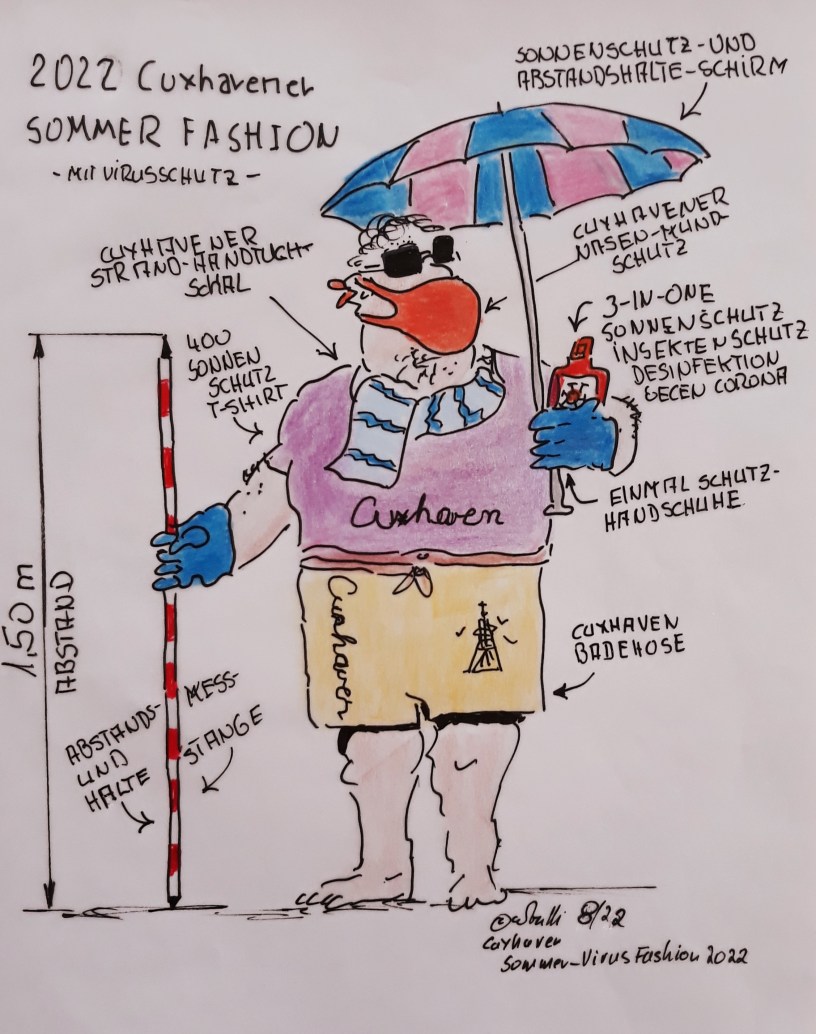 2022 Cuxhavener
SOMMER FASHION
- MIT VIRUSSCHUTZ -
SONNENSCHUTZ-UND
ABSTANDSHALTE-SCHIRM
CUXHAVENER
STRAND-HANDTUCH-
SCHAL
CUXHAVENER
NASEN-MUND-
SCHUTZ
3-IN-ONE
SONNENSCHUTZ
INSEKTENSCHUTZ
DESINFEKTION
GEGEN CORONA
400
SONNEN
SCHUTZ
T-SHIRT
Cuxhaven
EINMAL SCHUTZ-
HANDSCHUHE
1,50 m
ABSTAND
Cuxhaven
CUXHAVEN
BADEHOSE
ABSTANDS-
UND
HALTE
MESS-
STANGE
8/22
Cuxhaven
Sommer-Virus Fashion 2022